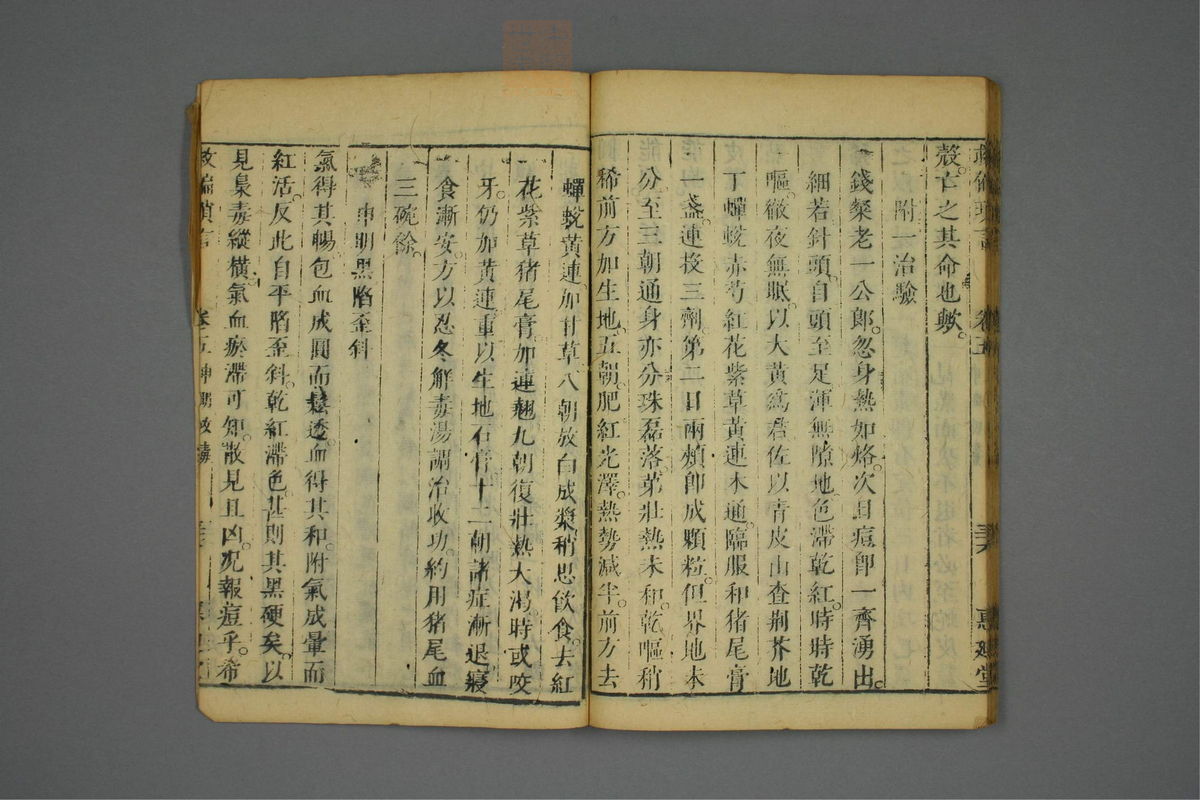 救偏瑣言 卷五 惠迪堂
殼。亡之其命也歟。
附一治驗
錢槼老一公郎。忽身熱如烙。次日痘卽一齊湧出。
細若針頭。自頭至足渾無隙地。色滯乾紅。時時乾
嘔。徹夜無眠。以大黃爲君。佐以青皮山查荆芥地
丁蟬蛻赤芍紅花紫草黃連木通。臨服和猪尾膏
一盞。連投三劑。第二日兩頰卽成顆粒。但界地未
分。至三朝通身亦分珠磊落。第壯熱未和。乾嘔稍
稀。前方加生地。五朝。肥紅光澤。熱勢減半。前方去
蟬蛻黃連。加甘草。八朝放白成漿。稍思飲食。去紅
花紫草猪尾膏。加連翹。九朝復壯熱大渴。時或咬
牙。仍加黃連。重以生地石膏。十二朝諸症漸退。寢
食漸安。方以忍冬解毒湯調治收功。約用猪尾血
三碗餘。
申明黑陷歪斜
氣得其暢。包血成圓而鬆透。血得其和。附氣成暈而
紅活。反此自平陷歪斜。乾紅滯色。甚則其黑硬矣。以
見梟毒縱橫。氣血瘀滯可知。散見且凶。况報痘乎。希
救偏瑣言 卷五申明救痛